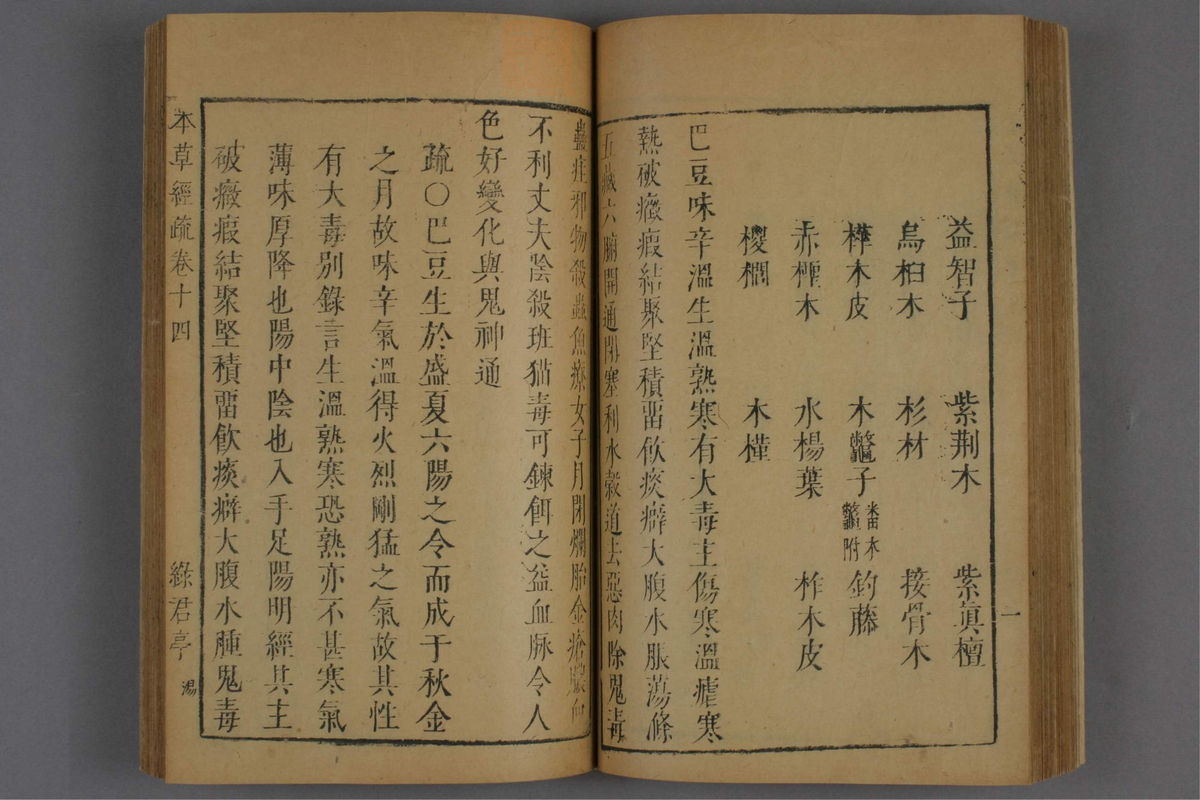 一
益智子 紫荆木 紫眞檀
烏桕木 杉材 接骨木
樺木皮 木鼈子 番木鼈附 釣藤
赤檉木 水楊葉 柞木皮
椶櫚 木槿
巴豆味辛溫生溫熟寒有大毒主傷寒溫瘧寒
熱破癥瘕結聚堅積畱飮痰癖大腹水脹蕩滌
五臟六腑開通閉塞利水穀道去惡肉除鬼毒
蠱疰邪物殺蟲魚療女子月閉爛胎金瘡膿血
不利丈夫陰殺班猫毒可鍊餌之益血脉令人
色好變化與鬼神通
疏○巴豆生於盛夏六陽之令而成于秋金
之月故味辛氣溫得火烈剛猛之氣故其性
有大毒別錄言生溫熟寒恐熟亦不甚寒氣
薄味厚降也陽中陰也入手足陽明經其主
破癥瘕結聚堅積畱飮痰癖大腹水腫鬼毒
本草經疏卷十四 綠君亭 湯